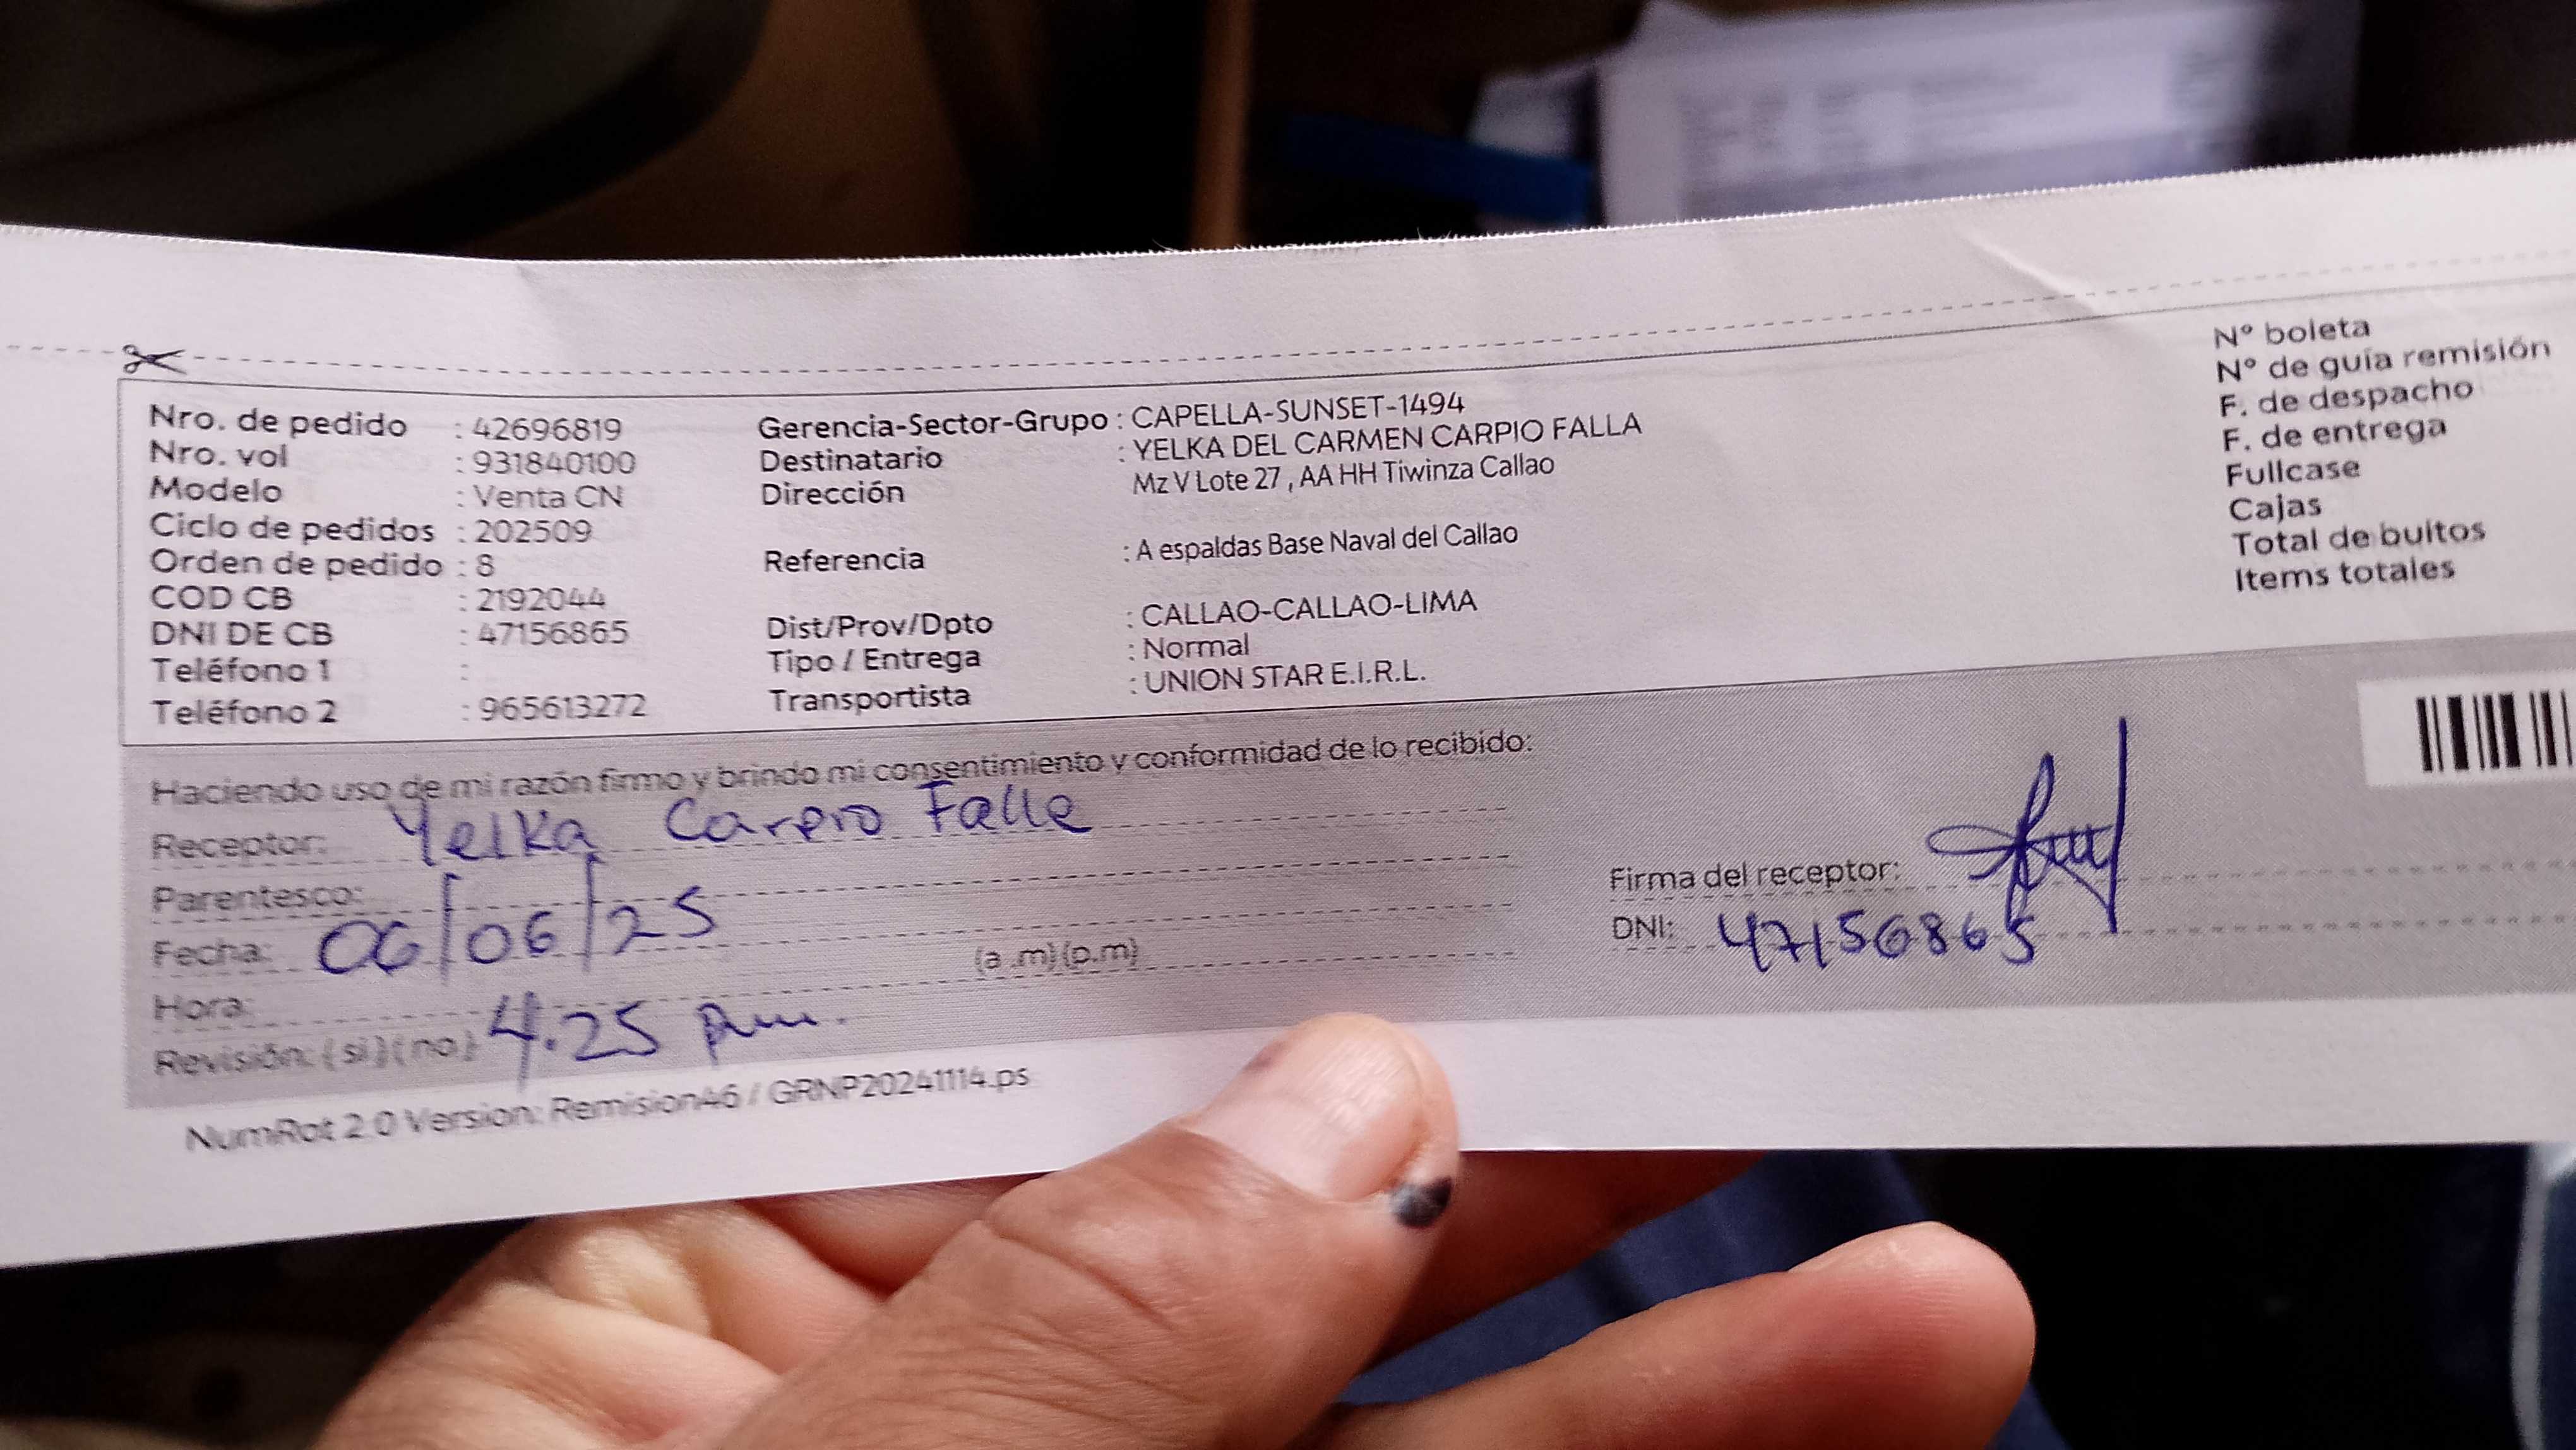 Nro. de pedido : 42696819
Nro. vol : 931840100
Modelo : Venta CN
Ciclo de pedidos : 202509
Orden de pedido : 8
COD CB : 2192044
DNI DE CB : 47156865
Teléfono 1 :
Teléfono 2 : 965613272
Gerencia-Sector-Grupo : CAPELLA-SUNSET-1494
Destinatario : YELKA DEL CARMEN CARPIO FALLA
Dirección Mz V Lote 27 , AA HH Tiwinza Callao
Referencia : A espaldas Base Naval del Callao
Dist/Prov/Dpto : CALLAO-CALLAO-LIMA
Tipo / Entrega : Normal
Transportista : UNION STAR E.I.R.L.
N° boleta
N° de guía remisión
F. de despacho
F. de entrega
Fullcase
Cajas
Total de bultos
Items totales
Haciendo uso de mi razón firmo y brindo mi consentimiento y conformidad de lo recibido:
Receptor: Yelka Carpio Falla
Parentesco:
Fecha: 06/06/25
Hora: (a .m)(p.m)
Revisión: (si)(no) 4.25 pm.
Firma del receptor:
DNI: 47156865
NumRot 2.0 Version: Remision46 / GRNP20241114.ps